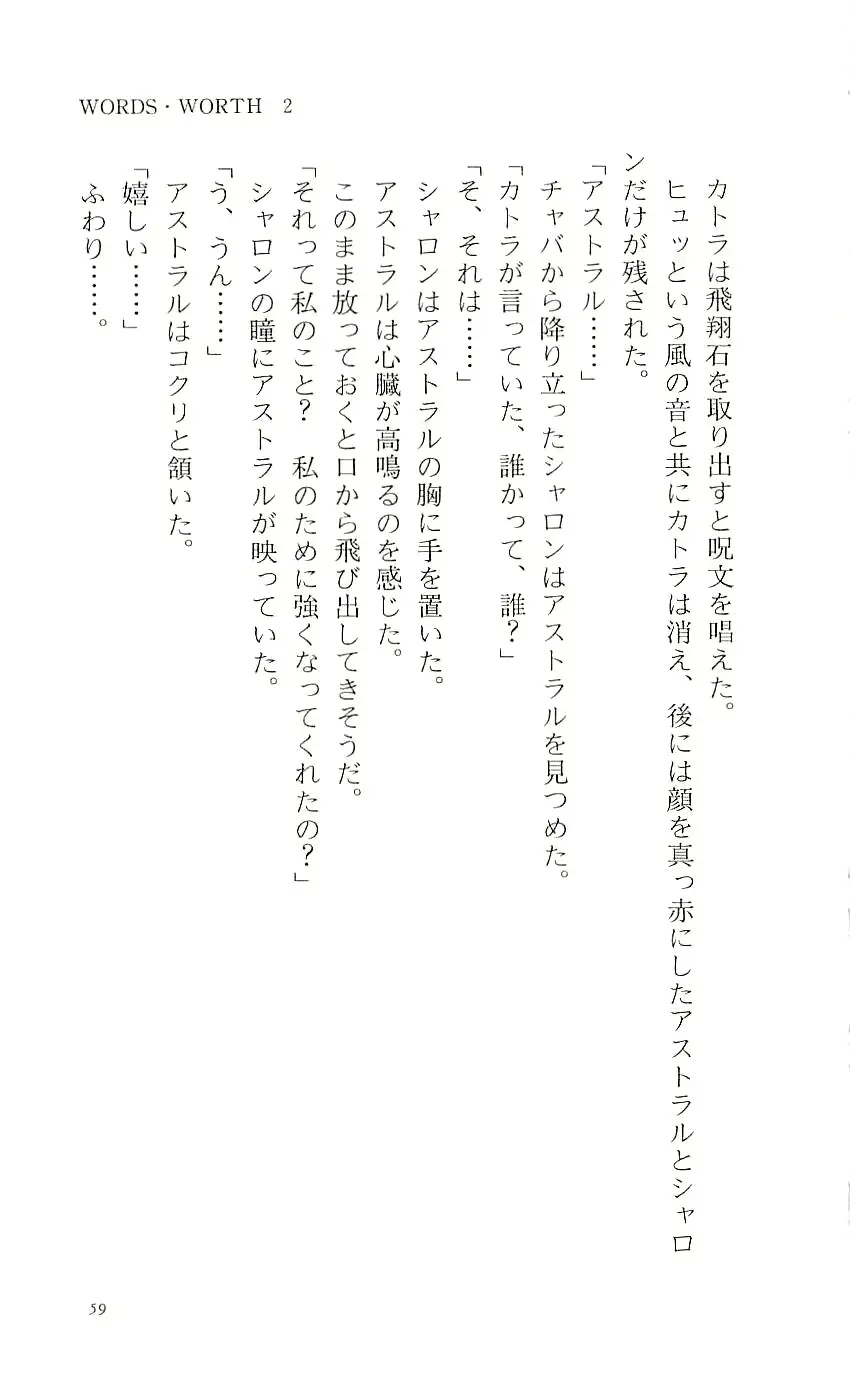 WORDS・WORTH 2
　カトラは飛翔石を取り出すと呪文を唱えた。
　ヒュッという風の音と共にカトラは消え、後には顔を真っ赤にしたアストラルとシャロ
ンだけが残された。
「アストラル……」
　チャバから降り立ったシャロンはアストラルを見つめた。
「カトラが言っていた、誰かって、誰？」
「そ、それは……」
　シャロンはアストラルの胸に手を置いた。
　アストラルは心臓が高鳴るのを感じた。
　このまま放っておくと口から飛び出してきそうだ。
「それって私のこと？　私のために強くなってくれたの？」
　シャロンの瞳にアストラルが映っていた。
「う、うん……」
　アストラルはコクリと頷いた。
「嬉しい……」
　ふわり……。
59